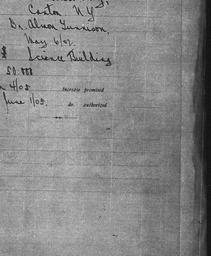 Canton N.Y.
Dr. Almon Gunnison,
May 6/02.
$ Science Building
50.000
4/05 Increase promised
June 1/05. do. authorized